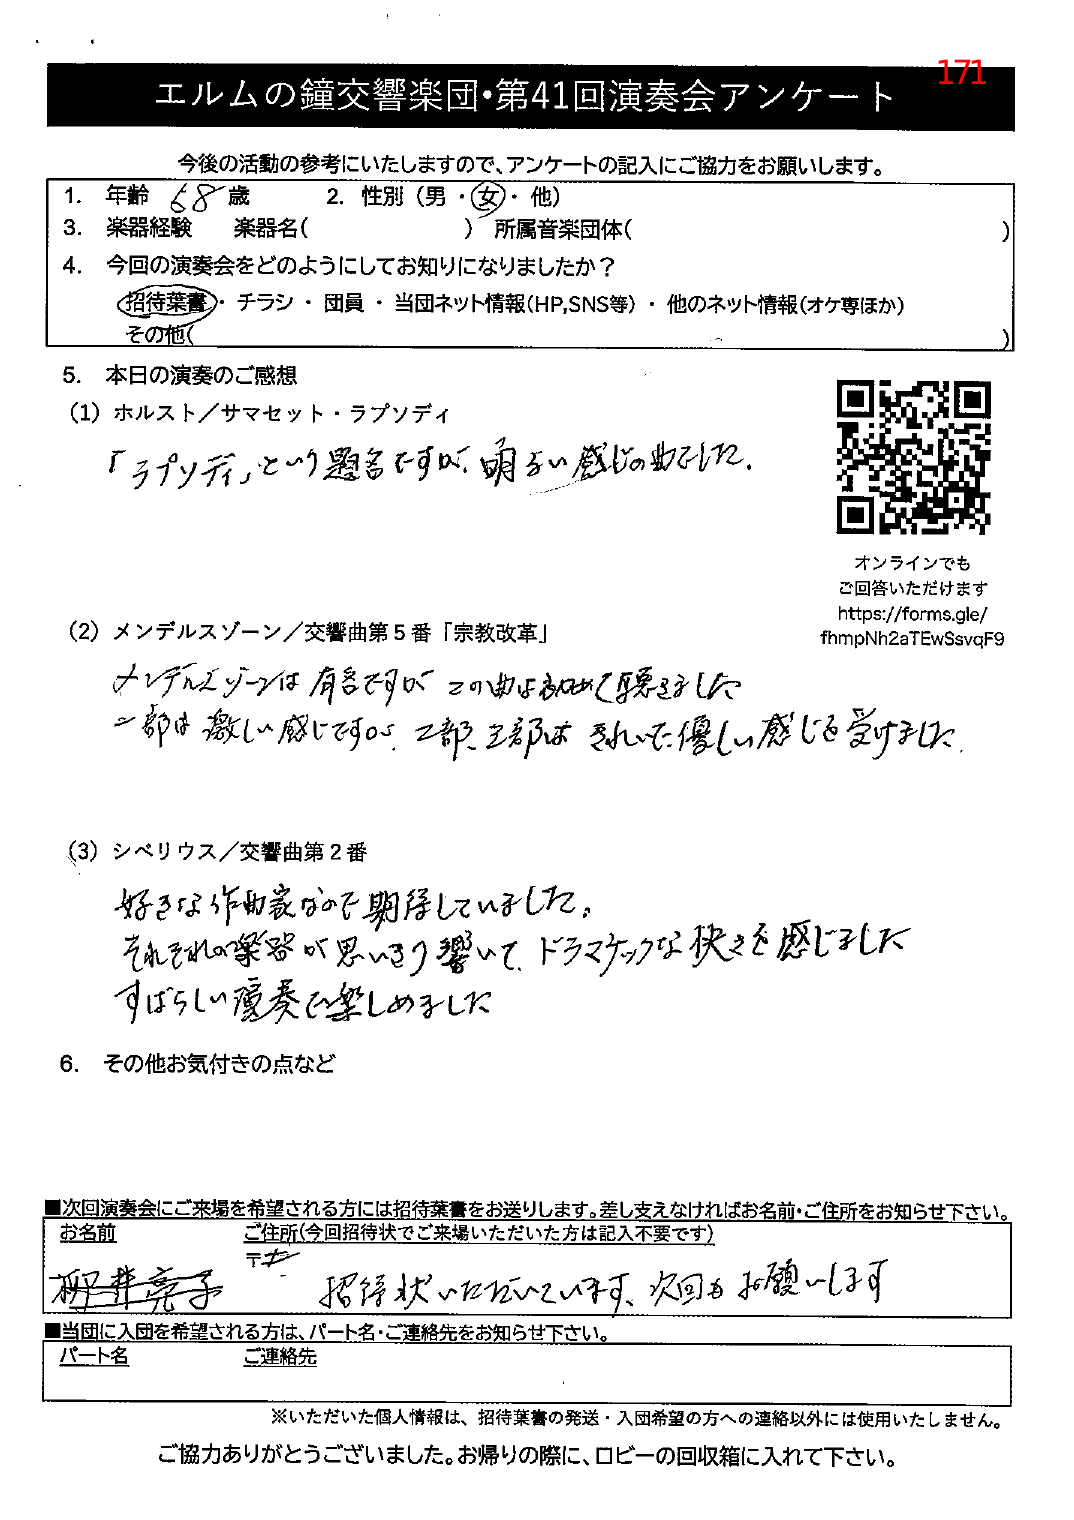 171
エルムの鐘交響楽団・第41回演奏会アンケート
今後の活動の参考にいたしますので、アンケートの記入にご協力をお願いします。
1. 年齢 68 歳 2. 性別（男 ・ 女 ・ 他）
3. 楽器経験 楽器名( ) 所属音楽団体( )
4. 今回の演奏会をどのようにしてお知りになりましたか？
招待葉書 ・ チラシ ・ 団員 ・ 当団ネット情報(HP,SNS等) ・ 他のネット情報(オケ専ほか)
その他( )
5. 本日の演奏のご感想
(1) ホルスト／サマセット・ラプソディ
「ラプソディ」という題名ですが、明るい感じの曲でした。
オンラインでも
ご回答いただけます
https://forms.gle/
fhmpNh2aTEwSsvqF9
(2) メンデルスゾーン／交響曲第５番「宗教改革」
メンデルスゾーンは有名ですが この曲は初めて聴きました
一部は激しい感じですが、二部、三部は きれいで優しい感じを受けました。
(3) シベリウス／交響曲第２番
好きな作曲家なので期待していました。
それぞれの楽器が思いきり響いて、ドラマチックな快さを感じました
すばらしい演奏で楽しめました
6. その他お気付きの点など
■次回演奏会にご来場を希望される方には招待葉書をお送りします。差し支えなければお名前・ご住所をお知らせ下さい。
お名前 ご住所(今回招待状でご来場いただいた方は記入不要です)
〒
招待状いただいています、次回もお願いします
■当団に入団を希望される方は、パート名・ご連絡先をお知らせ下さい。
パート名 ご連絡先
※いただいた個人情報は、招待葉書の発送・入団希望の方への連絡以外には使用いたしません。
ご協力ありがとうございました。お帰りの際に、ロビーの回収箱に入れて下さい。